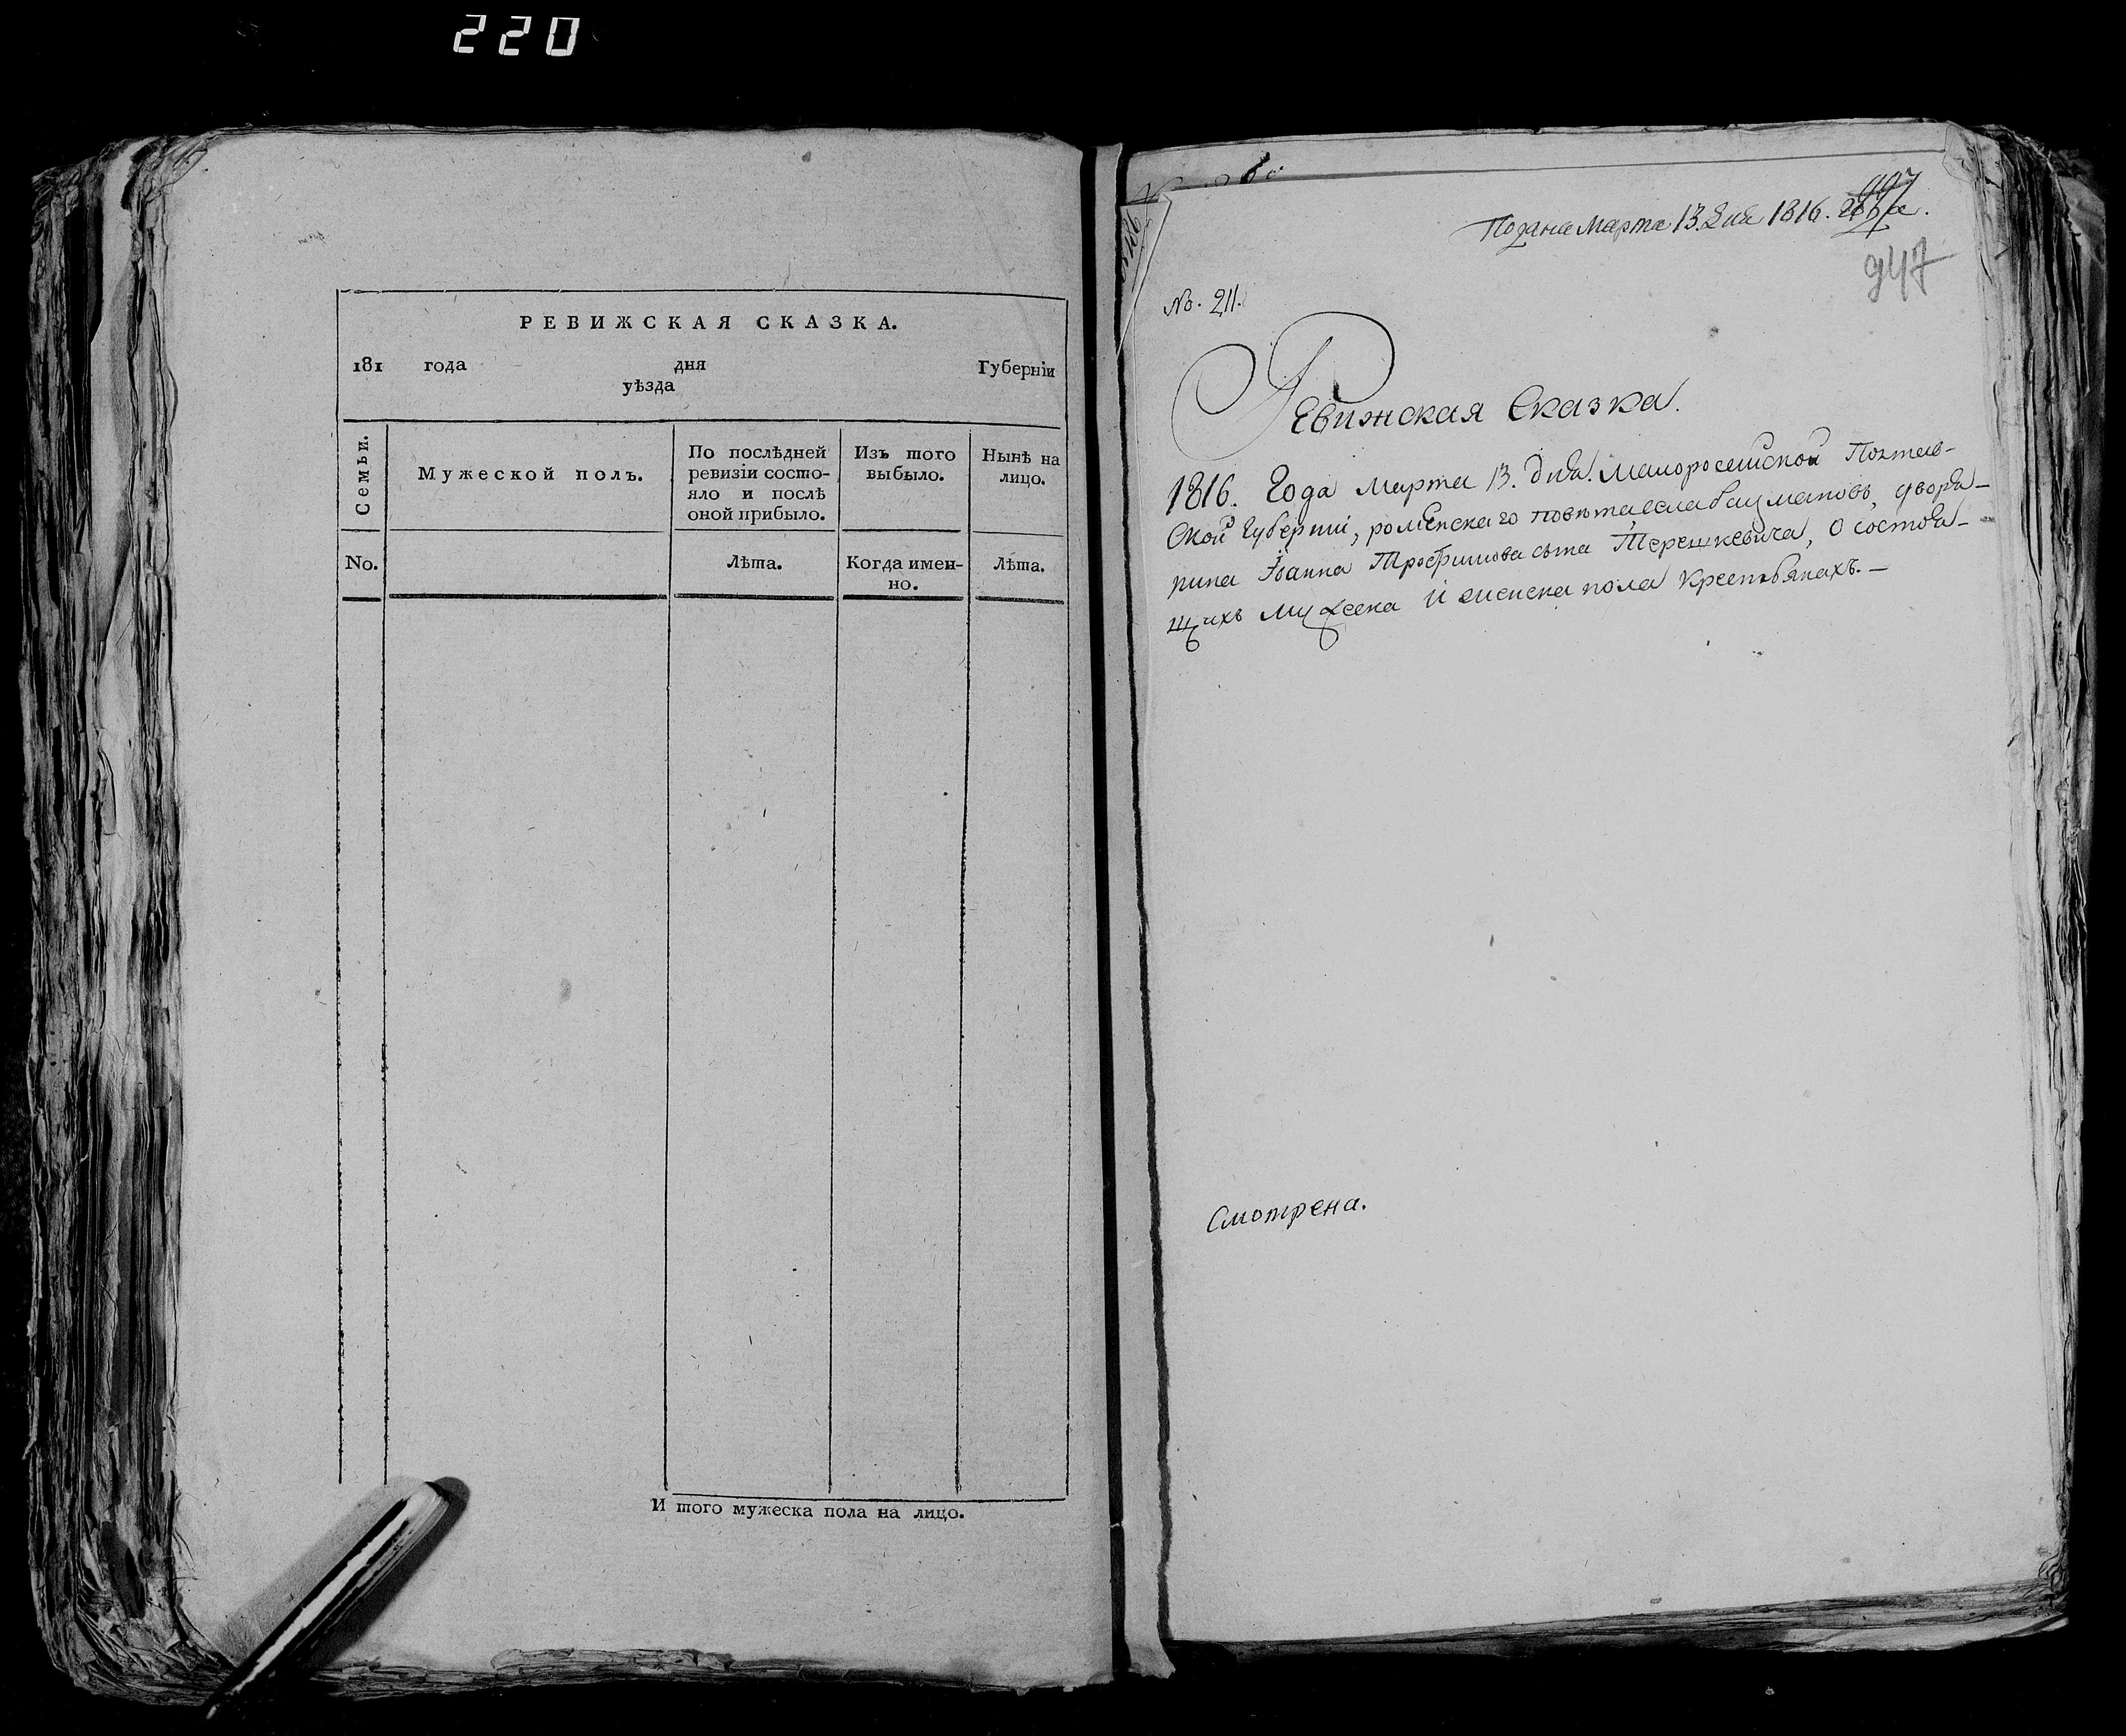 220
РЕВИЖСКАЯ СКАЗКА.
181 года дня Губернїи
уѣзда
Семьи.
Мужеской полъ.
По послѣдней ревизїи состояло и послѣ оной прибыло.
Изъ того выбыло.
Нынѣ на лицо.
No.
Лѣта.
Когда именно.
Лѣта.
И того мужеска пола на лицо.
Подана Марта 13. дня 1816. года.
947
No. 211.
Ревижская Сказка.
1816. Года Марта 13. дня. Малоросейской Полтав-
ской Губернїи, роменскаго повѣта, дворя-
нина Іоанна Трофимова сына Терешкевича, о состоя-
щихъ мужеска и женска пола крестьянахъ. —
Смотрена.